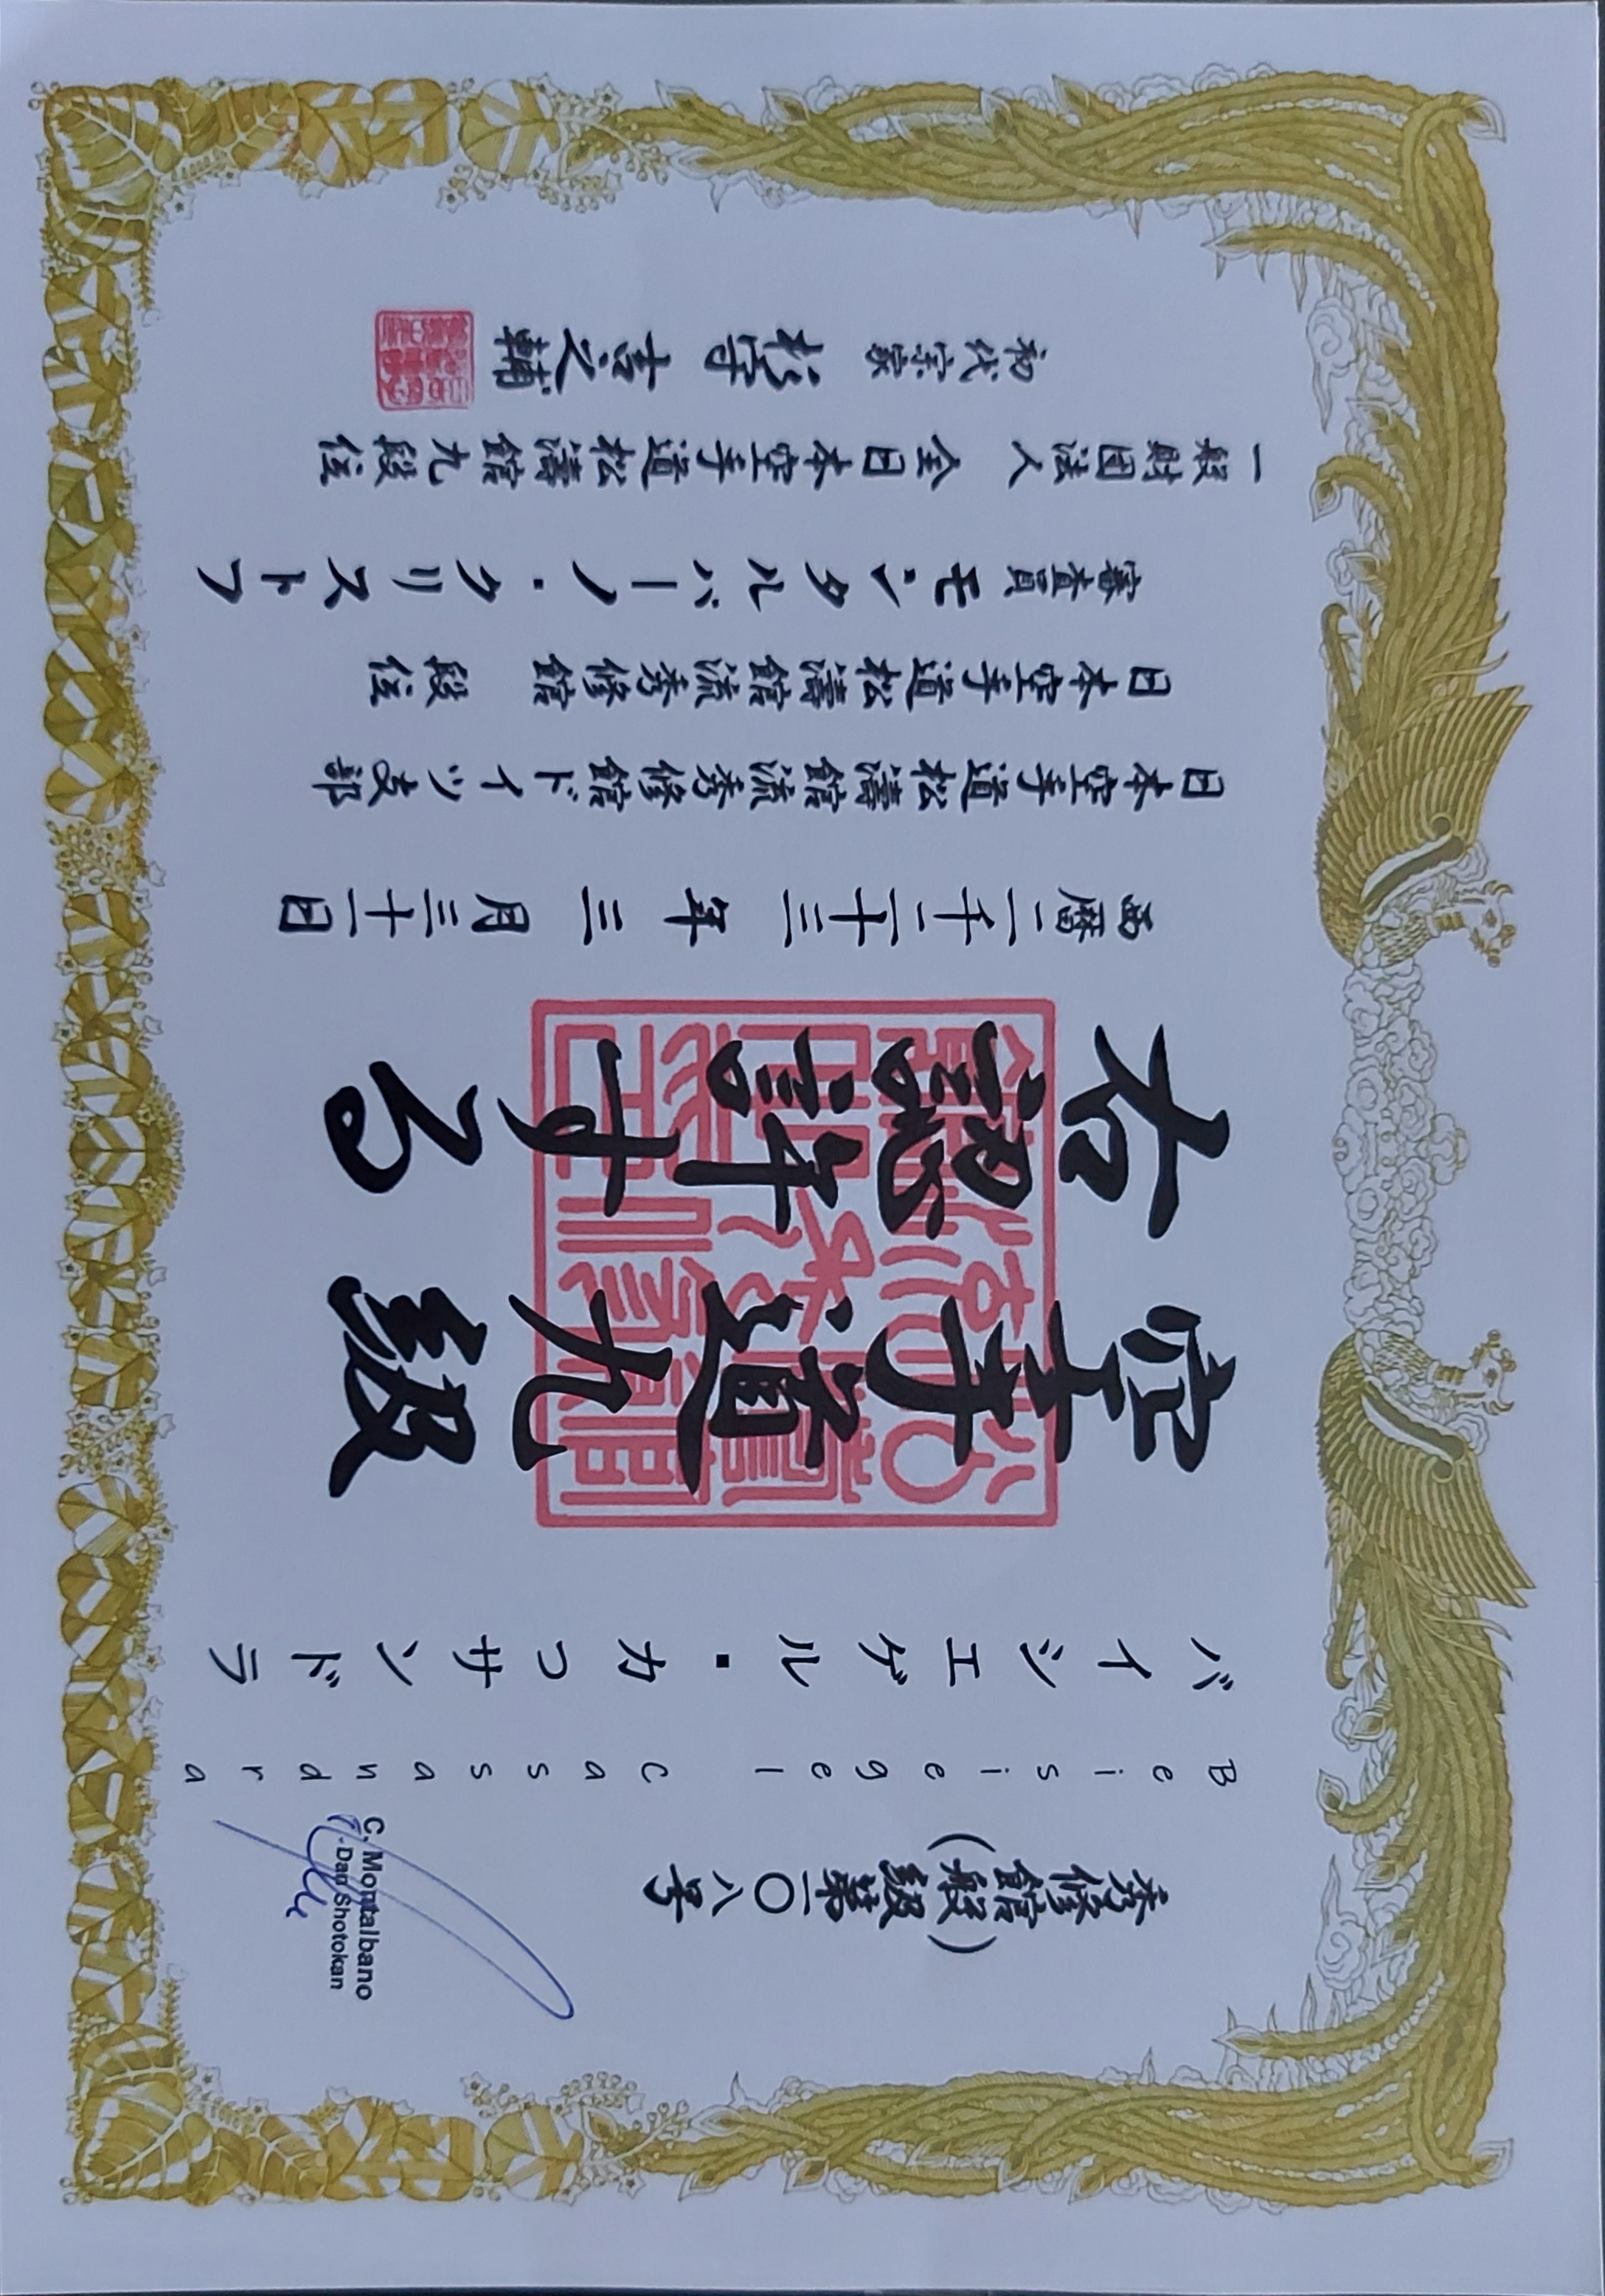 秀修館
(段級)
第一〇八号
Beisiegel Cassandra
バイシエゲル・カッサンドラ
空手道九級
右認許する
西暦二千二十三年三月三十一日
日本空手道松濤館流秀修館ドイツ支部
日本空手道松濤館流秀修館 段位
審査員モンタルバーノ・クリストフ
一般財団法人 全日本空手道松濤館九段位
初代宗家 松宇 吉之輔
C. Montalbano
-Dan Shotokan